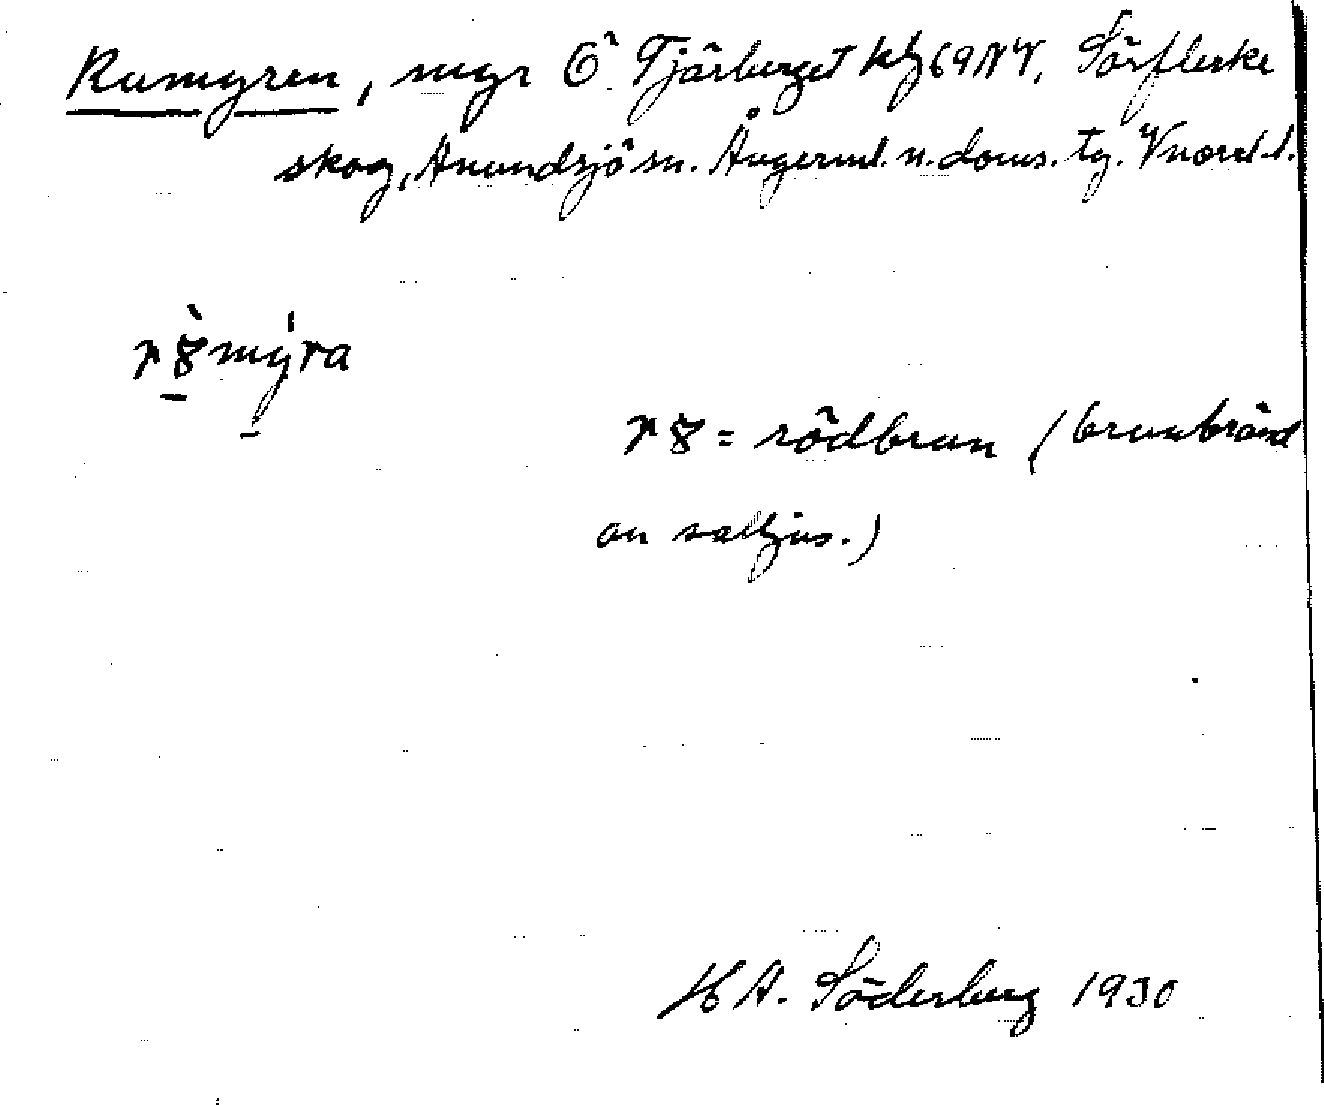 Rumyren, myr Ö Tjärberget kbl 69 NV, Sörfleske
skog, Anundsjö sn. Ångerml. n. doms. tg. Vnorrl. l.
rȣ̀mýra
rȣ = rödbrun (brunbränd
on
H A. Söderberg 1930